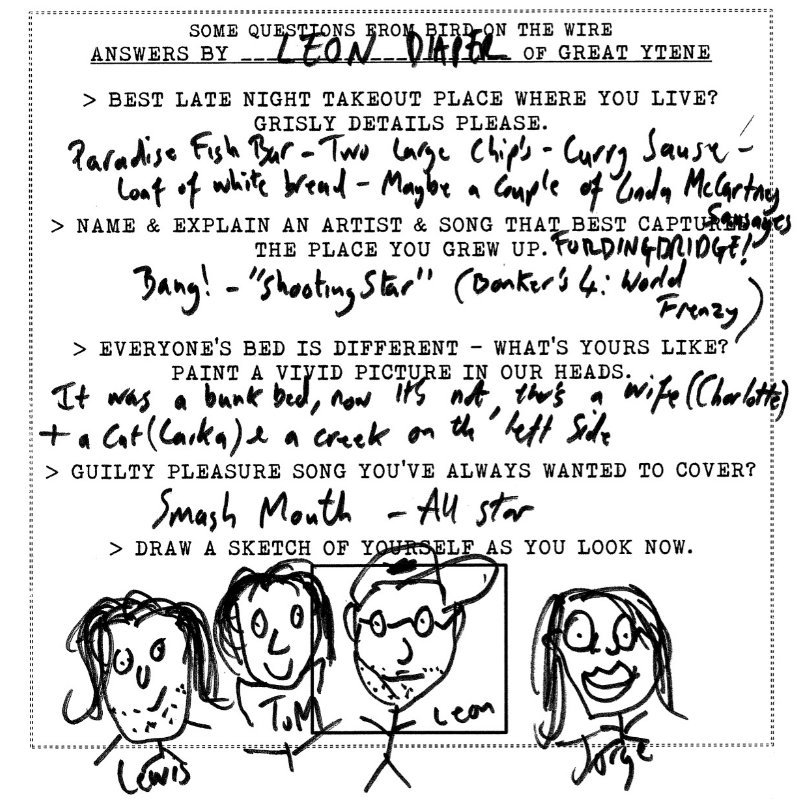 SOME QUESTIONS FROM BIRD ON THE WIRE
ANSWERS BY LEON DIAPER OF GREAT YTENE
> BEST LATE NIGHT TAKEOUT PLACE WHERE YOU LIVE?
GRISLY DETAILS PLEASE.
Paradise Fish Bar - Two Large Chip's - Curry Sause -
Loaf of white bread - Maybe a couple of Linda McCartney
Sausages
> NAME & EXPLAIN AN ARTIST & SONG THAT BEST CAPTURES
THE PLACE YOU GREW UP. FORDINGBRIDGE!
Bang! - "Shooting Star" (Bonker's 4: World
Frenzy)
> EVERYONE'S BED IS DIFFERENT - WHAT'S YOURS LIKE?
PAINT A VIVID PICTURE IN OUR HEADS.
It was a bunk bed, now it's not, ther's a wife (Charlotte)
+ a Cat (Laika) & a creek on th' left Side
> GUILTY PLEASURE SONG YOU'VE ALWAYS WANTED TO COVER?
Smash Mouth - All star
> DRAW A SKETCH OF YOURSELF AS YOU LOOK NOW.
Lewis
TOM
Leon
Jorge